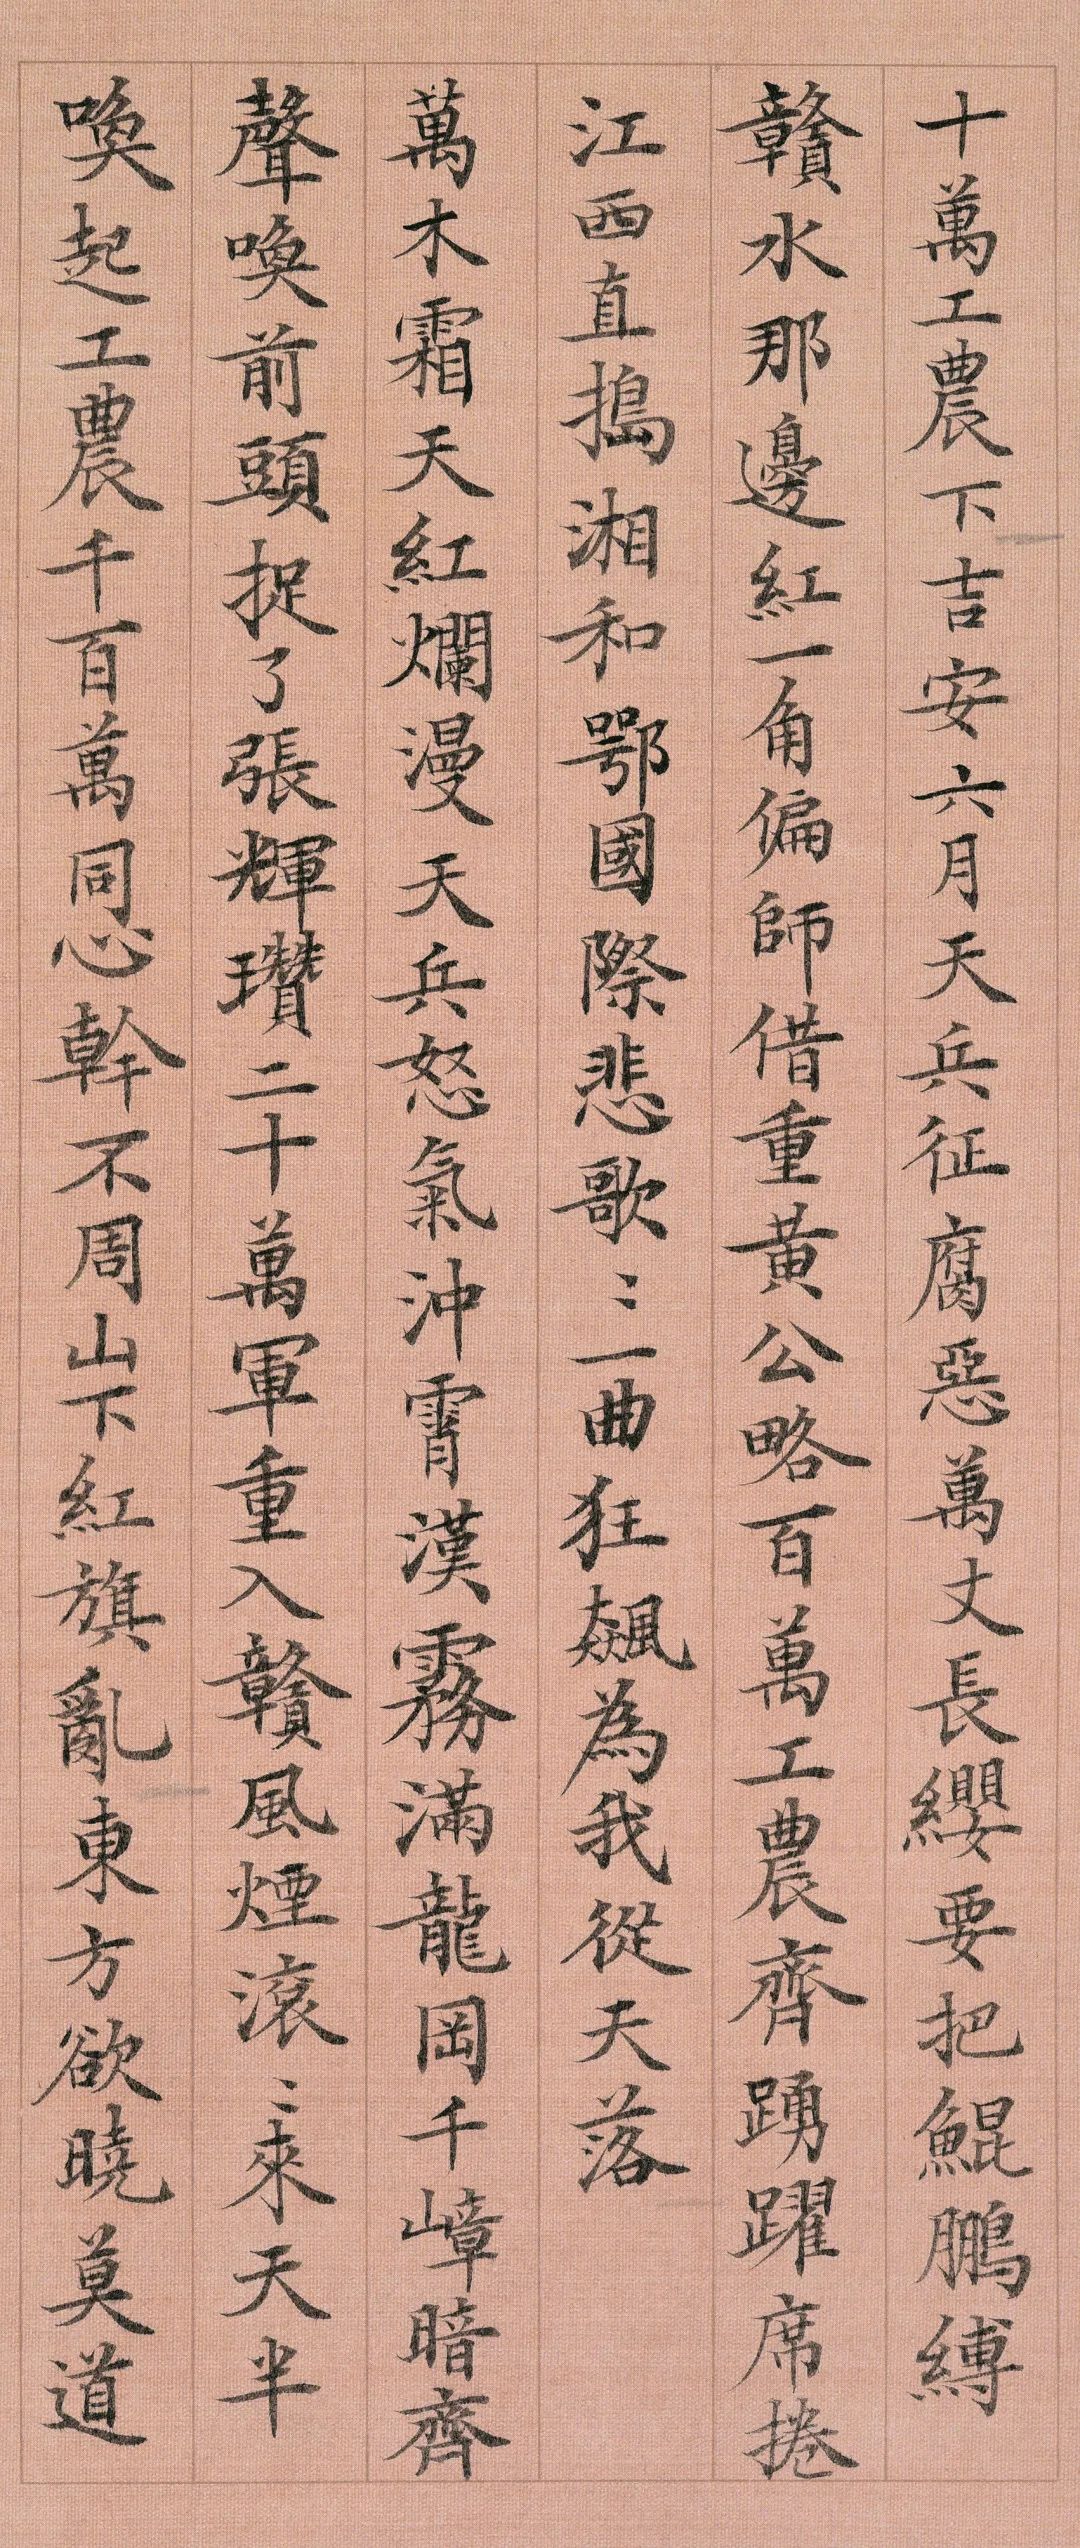 十萬工農下吉安六月天兵征腐惡萬丈長纓要把鯤鵬縛
贛水那邊紅一角偏師借重黃公略百萬工農齊踴躍席捲
江西直搗湘和鄂國際悲歌〻一曲狂飆為我從天落
萬木霜天紅爛漫天兵怒氣沖霄漢霧滿龍岡千嶂暗齊
聲喚前頭捉了張輝瓚二十萬軍重入贛風煙滾〻來天半
喚起工農千百萬同心幹不周山下紅旗亂東方欲曉莫道